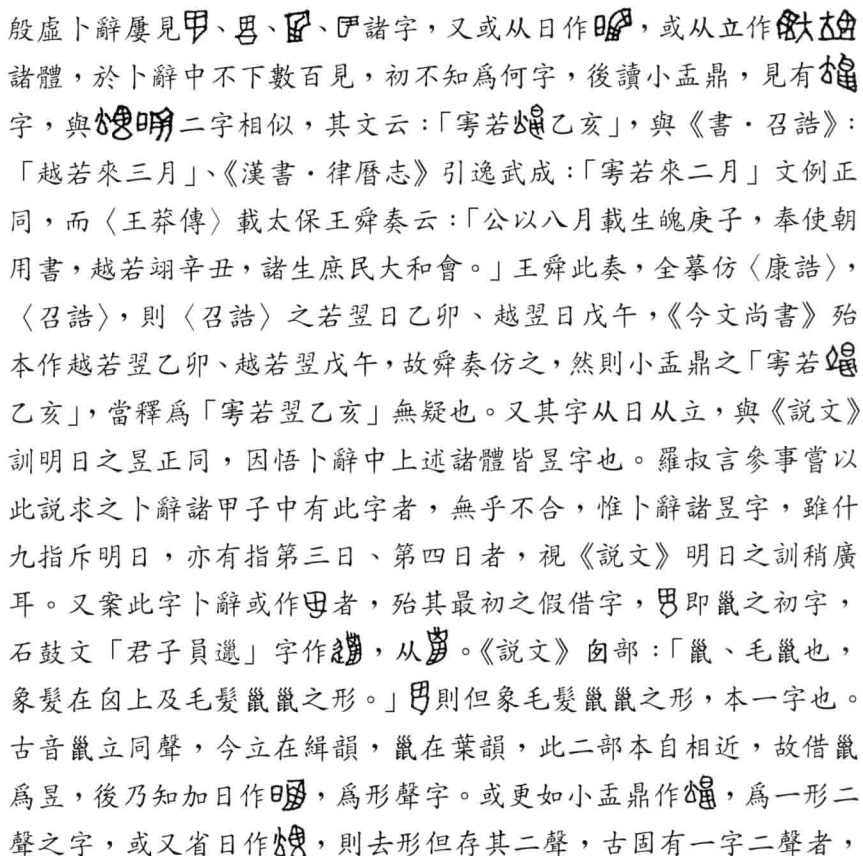 殷虛卜辭屢見、、、諸字，又或从日作，或从立作
諸體，於卜辭中不下數百見，初不知爲何字，後讀小盂鼎，見有
字，與二字相似，其文云：「雩若乙亥」，與《書．召誥》：
「越若來三月」、《漢書．律曆志》引逸武成：「雩若來二月」文例正
同，而〈王莽傳〉載太保王舜奏云：「公以八月載生魄庚子，奉使朝
用書，越若翊辛丑，諸生庶民大和會。」王舜此奏，全摹仿〈康誥〉，
〈召誥〉，則〈召誥〉之若翌日乙卯、越翌日戊午，《今文尚書》殆
本作越若翌乙卯、越若翌戊午，故舜奏仿之，然則小盂鼎之「雩若
乙亥」，當釋爲「雩若翌乙亥」無疑也。又其字从日从立，與《說文》
訓明日之昱正同，因悟卜辭中上述諸體皆昱字也。羅叔言參事嘗以
此說求之卜辭諸甲子中有此字者，無乎不合，惟卜辭諸昱字，雖什
九指斥明日，亦有指第三日、第四日者，視《說文》明日之訓稍廣
耳。又案此字卜辭或作者，殆其最初之假借字，即鼠之初字，
石鼓文「君子員邋」字作，从。《說文》囟部：「巤、毛巤也，
象髮在囟上及毛髮巤巤之形。」則但象毛髮巤巤之形，本一字也。
古音巤立同聲，今立在緝韻，巤在葉韻，此二部本自相近，故借巤
爲昱，後乃知加日作，爲形聲字。或更如小盂鼎作，爲一形二
聲之字，或又省日作，則去形但存其二聲，古固有一字二聲者，